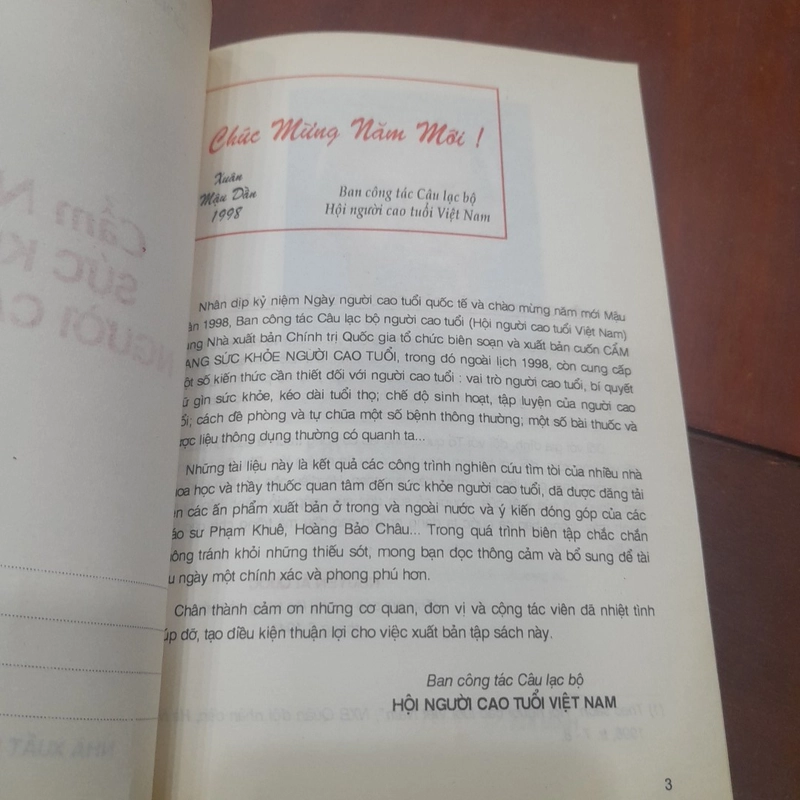 Chúc Mừng Năm Mới !
Xuân
Mậu Dần
1998
Ban công tác Câu lạc bộ
Hội người cao tuổi Việt Nam
Nhân dịp kỷ niệm Ngày người cao tuổi quốc tế và chào mừng năm mới Mậu
1998, Ban công tác Câu lạc bộ người cao tuổi (Hội người cao tuổi Việt Nam)
Nhà xuất bản Chính trị Quốc gia tổ chức biên soạn và xuất bản cuốn CẨM
ANG SỨC KHỎE NGƯỜI CAO TUỔI, trong đó ngoài lịch 1998, còn cung cấp
ột số kiến thức cần thiết đối với người cao tuổi : vai trò người cao tuổi, bí quyết
ữ gìn sức khỏe, kéo dài tuổi thọ; chế độ sinh hoạt, tập luyện của người cao
ổi; cách đề phòng và tự chữa một số bệnh thông thường; một số bài thuốc và
ược liệu thông dụng thường có quanh ta...
Những tài liệu này là kết quả các công trình nghiên cứu tìm tòi của nhiều nhà
hoa học và thầy thuốc quan tâm đến sức khỏe người cao tuổi, đã được đăng tải
ên các ấn phẩm xuất bản ở trong và ngoài nước và ý kiến đóng góp của các
áo sư Phạm Khuê, Hoàng Bảo Châu... Trong quá trình biên tập chắc chắn
ông tránh khỏi những thiếu sót, mong bạn đọc thông cảm và bổ sung để tài
u ngày một chính xác và phong phú hơn.
Chân thành cảm ơn những cơ quan, đơn vị và cộng tác viên đã nhiệt tình
úp đỡ, tạo điều kiện thuận lợi cho việc xuất bản tập sách này.
Ban công tác Câu lạc bộ
HỘI NGƯỜI CAO TUỔI VIỆT NAM
3